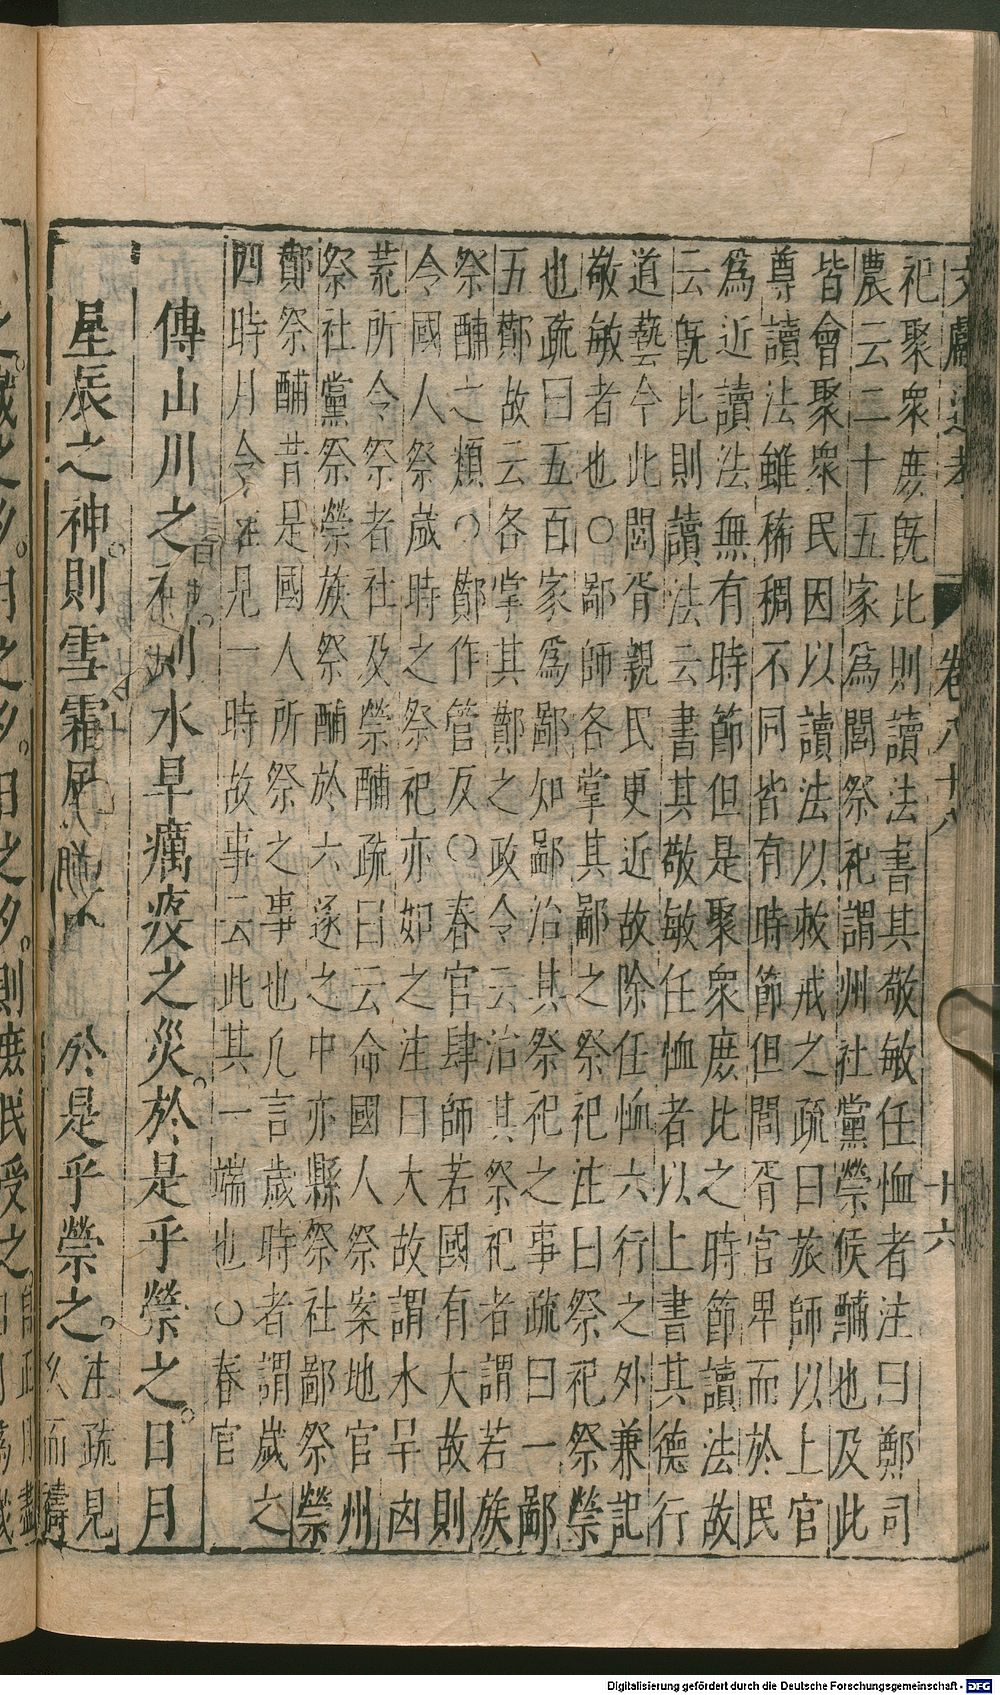 文獻通考 卷八十八 十六
祀聚衆庶旣比則讀法書其敬敏任恤者注曰鄭司
農云二十五家爲閭祭祀謂州社黨禜侯酺也及此
皆會聚衆民因以讀法以敕戒之疏曰旅師以上官
尊讀法雖稀稠不同皆有時節但閭胥官卑而於民
爲近讀法無有時節但是聚衆庶比之時節讀法故
云旣比則讀法云書其敬敏任恤者以上書其德行
道藝今此閭胥親民更近故除任恤六行之外兼記
敬敏者也○鄙師各掌其鄙之祭祀注曰祭祀祭禜
也疏曰五百家爲鄙知鄙治其祭祀之事疏曰一鄙
五酇故云各掌其酇之政令云治其祭祀者謂若族
祭酺之類○酇作管反○春官肆師若國有大故則
令國人祭歲時之祭祀亦如之注曰大故謂水旱凶
荒所令祭者社及禜酺疏曰云命國人祭案地官州
祭社黨祭禜族祭酺於六遂之中亦縣祭社鄙祭禜
酇祭酺昔是國人所祭之事也凡言歲時者謂歲之
四時月令 見一時故事云此其一端也○春官
傳山川之 則水旱癘疫之災於是乎禜之日月
星辰之神則雪霜風 於是乎禜之注疏見
後而禱
之歲之夕月之夕日之夕則庶民受之
Digitalisierung gefördert durch die Deutsche Forschungsgemeinschaft - DFG